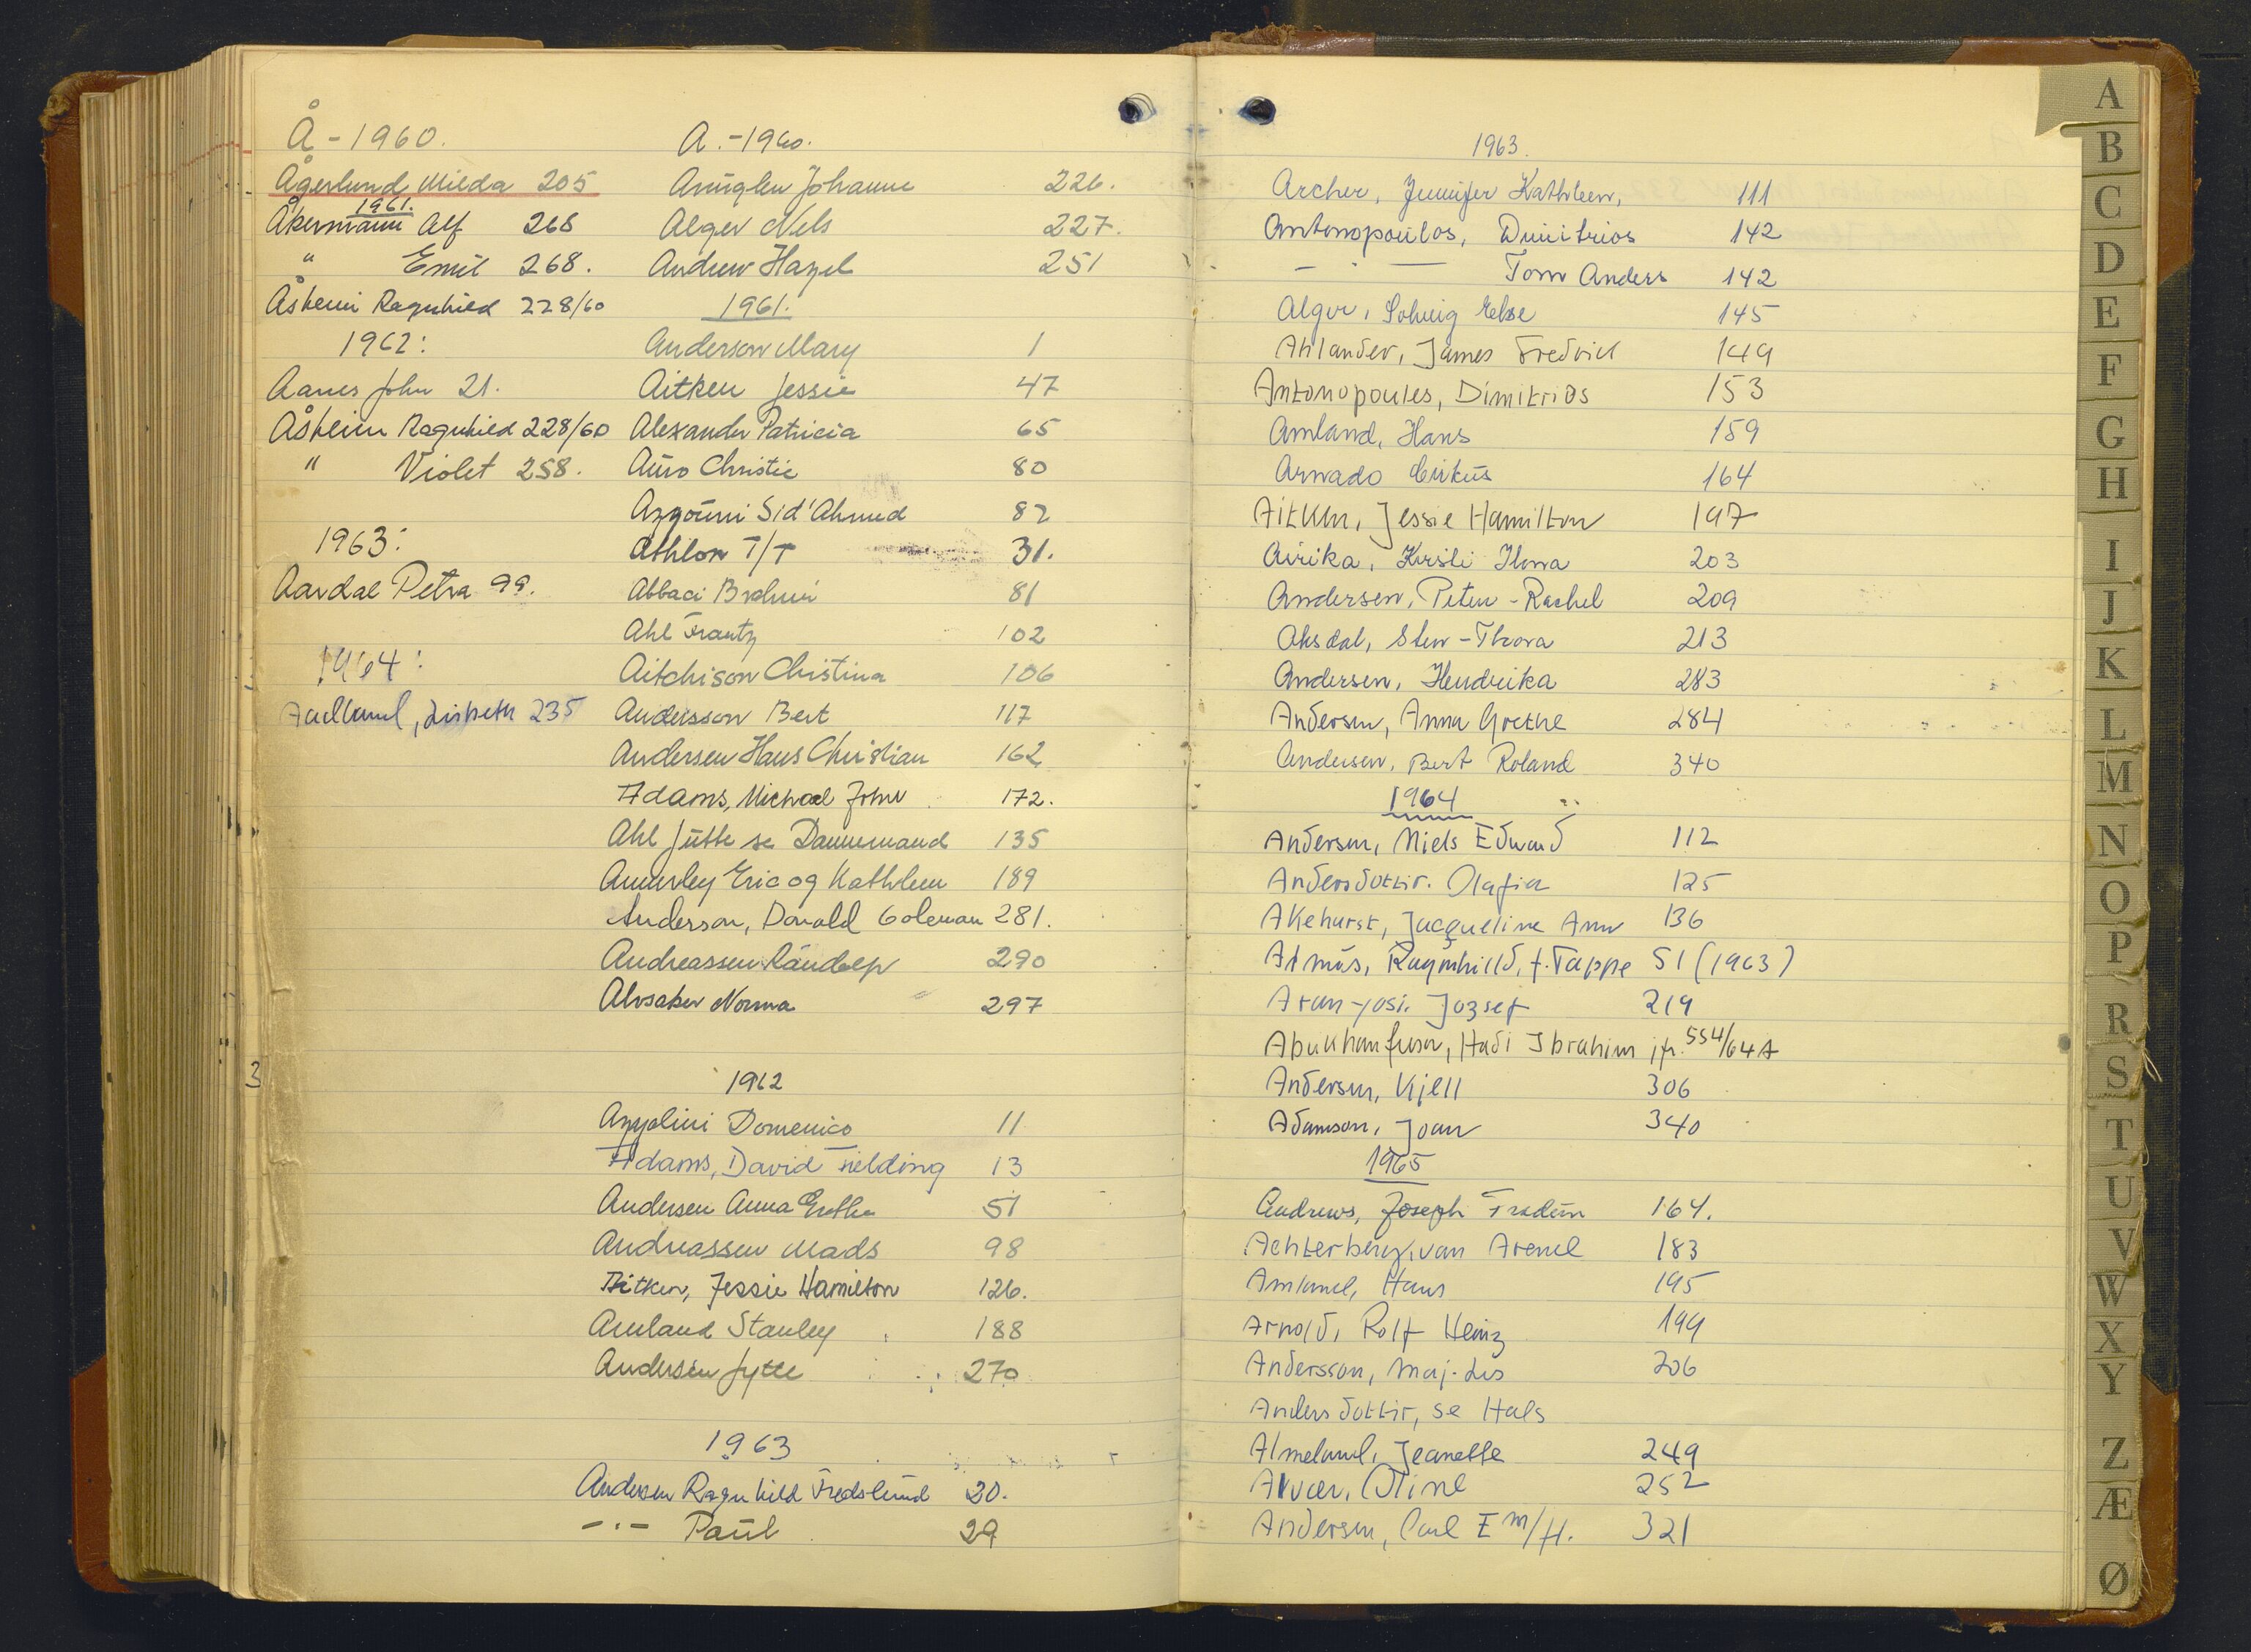 Å - 1960.
Ågerlund Milda 205
1961.
Åkermann Alf 268
" Emil 268.
Åsheim Ragnhild 228/60
1962:
Aanes John 21.
Åsheim Ragnhild 228/60
" Violet 258.
1963:
Aardal Petra 99.
1964:
235
A. - 1960.
Johanne 226.
Alger Nels 227.
Andrew Hazel 251
1961.
Anderson Mary 1
Aitken Jessie 47
Alexander Patricia 65
Auro Christie 80
Azzouni Sid'Ahmed 82
Athlon T/T 31.
Abbaci Brahim 81
Ahl Frantz 102
Aitchison Christina 106
Andersson Bert 117
Andersen Hans Christian 162
Adams, Michael John 172.
Ahl Jütte se Dannemand 135
Annerley Eric og Kathleen 189
Anderson, Donald Coleman 281.
Andreassen Randolp 290
Alvsaker Norma 297
1962
Azzolini Domenico 11
Adams, David Fielding 13
Andersen Anna Grethe 51
Andreassen Mads 98
Aitken, Jessie Hamilton 126.
Amland Stanley 188
Andersen Jytte 270
1963
Andersen Ragnhild Fredslund 20.
- " - Paul 29
3
1963.
Archer, Jennifer Kathleen, 111
Antonopoulos, Dimitrios 142
- " - Tom Anders 142
Alger, Solveig Else 145
Ahlander, James Fredrick 149
Antonopoules, Dimitrios 153
Amland, Hans 159
Arnado Cirkus 164
Aitken, Jessie Hamilton 197
Airika, Kirsti Ilona 203
Andersen, Peter - Rachel 209
Aksdal, Sten - Thora 213
Andersen, Hendrika 283
Andersen, Anna Grethe 284
Andersen, Bert Roland 340
1964
Andersen, Niels Edward 112
Andersdottir. Olafia 125
Akehurst, Jacqueline Ann 136
Almås, Ragnhild, f. Tappe 51 (1963)
Aran-yosi. Jozsef 219
Hadi Ibrahim jfr. 554/64 A
Andersen, Kjell 306
Adamson, Joan 340
1965
Andrews, Joseph 164.
Achterberg, van Arend 183
Amland, Hans 195
Arnold, Rolf Heinz 199
Andersson, Maj-Lis 206
Andersdottir, se Hals
Almeland, Jeanette 249
Alvær, Oline 252
Andersen, Carl E m/fl. 321
A
B
C
D
E
F
G
H
I
J
K
L
M
N
O
P
R
S
T
U
V
W
X
Y
Z
Æ
Ø